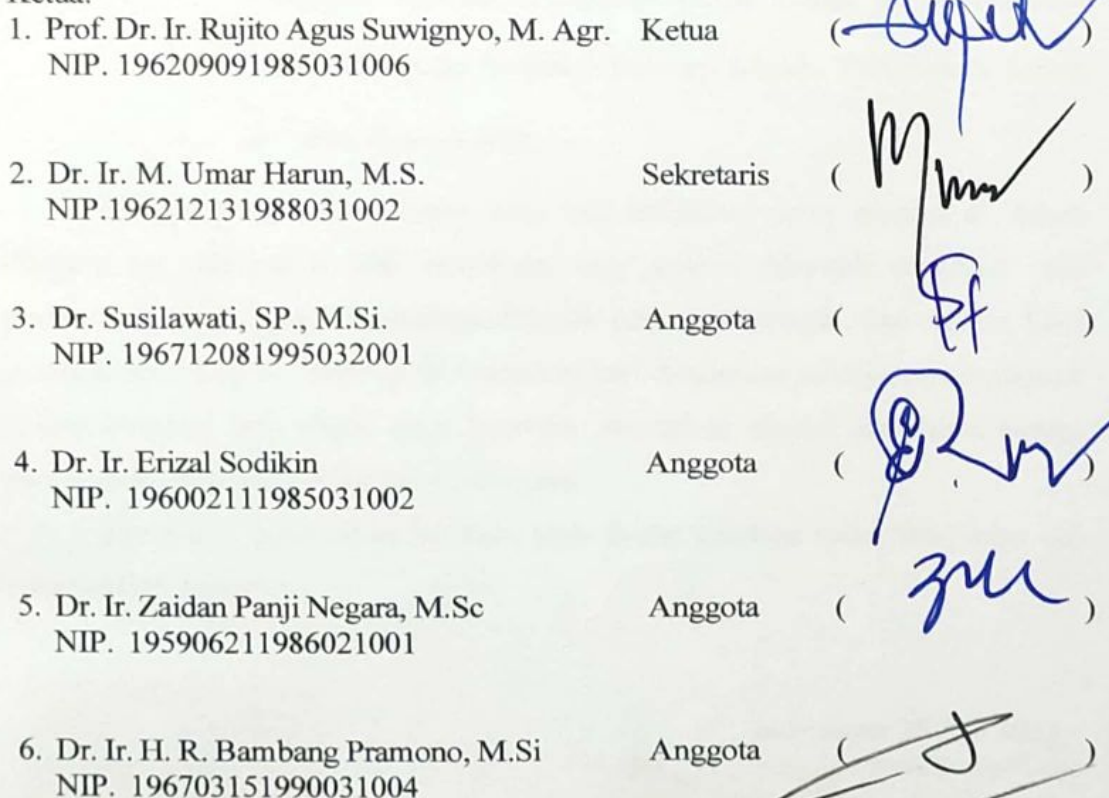 Ketua:
1. Prof. Dr. Ir. Rujito Agus Suwignyo, M. Agr. Ketua ( )
NIP. 196209091985031006
2. Dr. Ir. M. Umar Harun, M.S. Sekretaris ( )
NIP.196212131988031002
3. Dr. Susilawati, SP., M.Si. Anggota ( )
NIP. 196712081995032001
4. Dr. Ir. Erizal Sodikin Anggota ( )
NIP. 196002111985031002
5. Dr. Ir. Zaidan Panji Negara, M.Sc Anggota ( )
NIP. 195906211986021001
6. Dr. Ir. H. R. Bambang Pramono, M.Si Anggota ( )
NIP. 196703151990031004